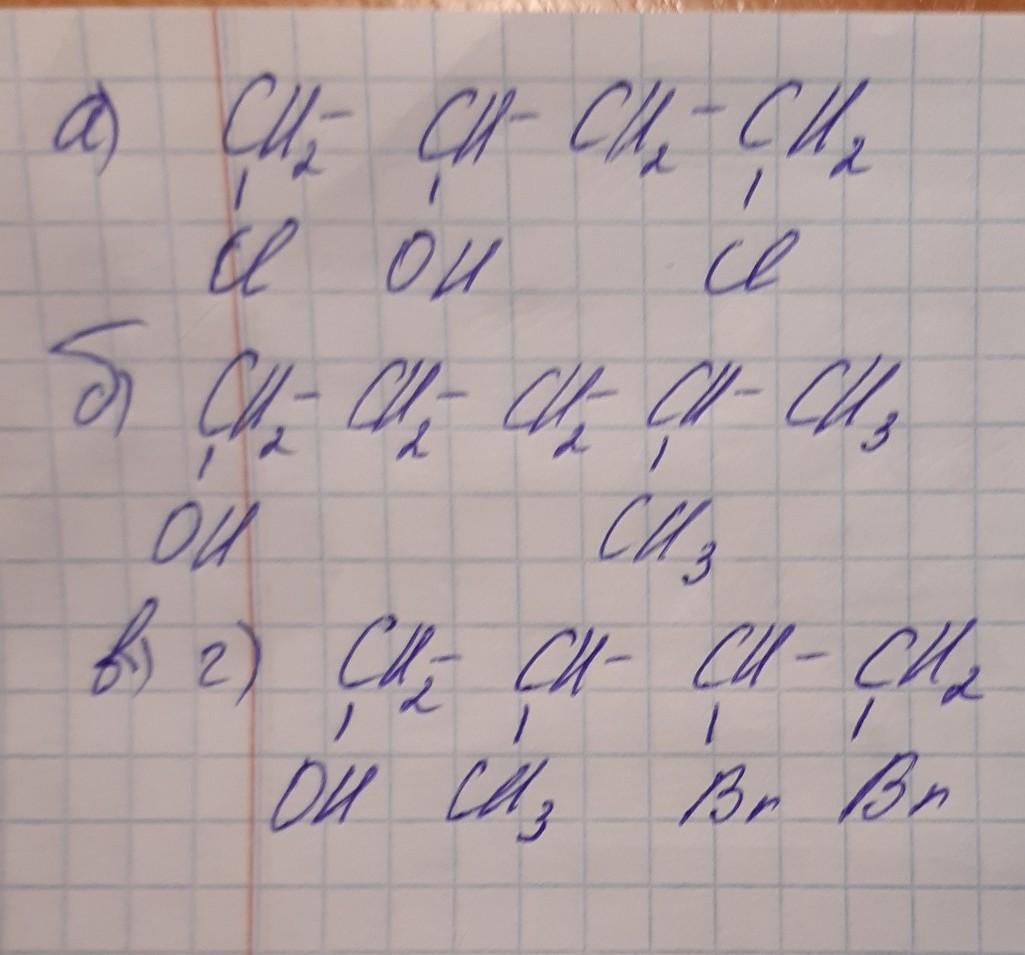 а) CH2- CH- CH2- CH2
Cl OH Cl
б) CH2- CH2- CH2- CH- CH3
OH CH3
в) г) CH2- CH- CH- CH2
OH CH3 Br Br